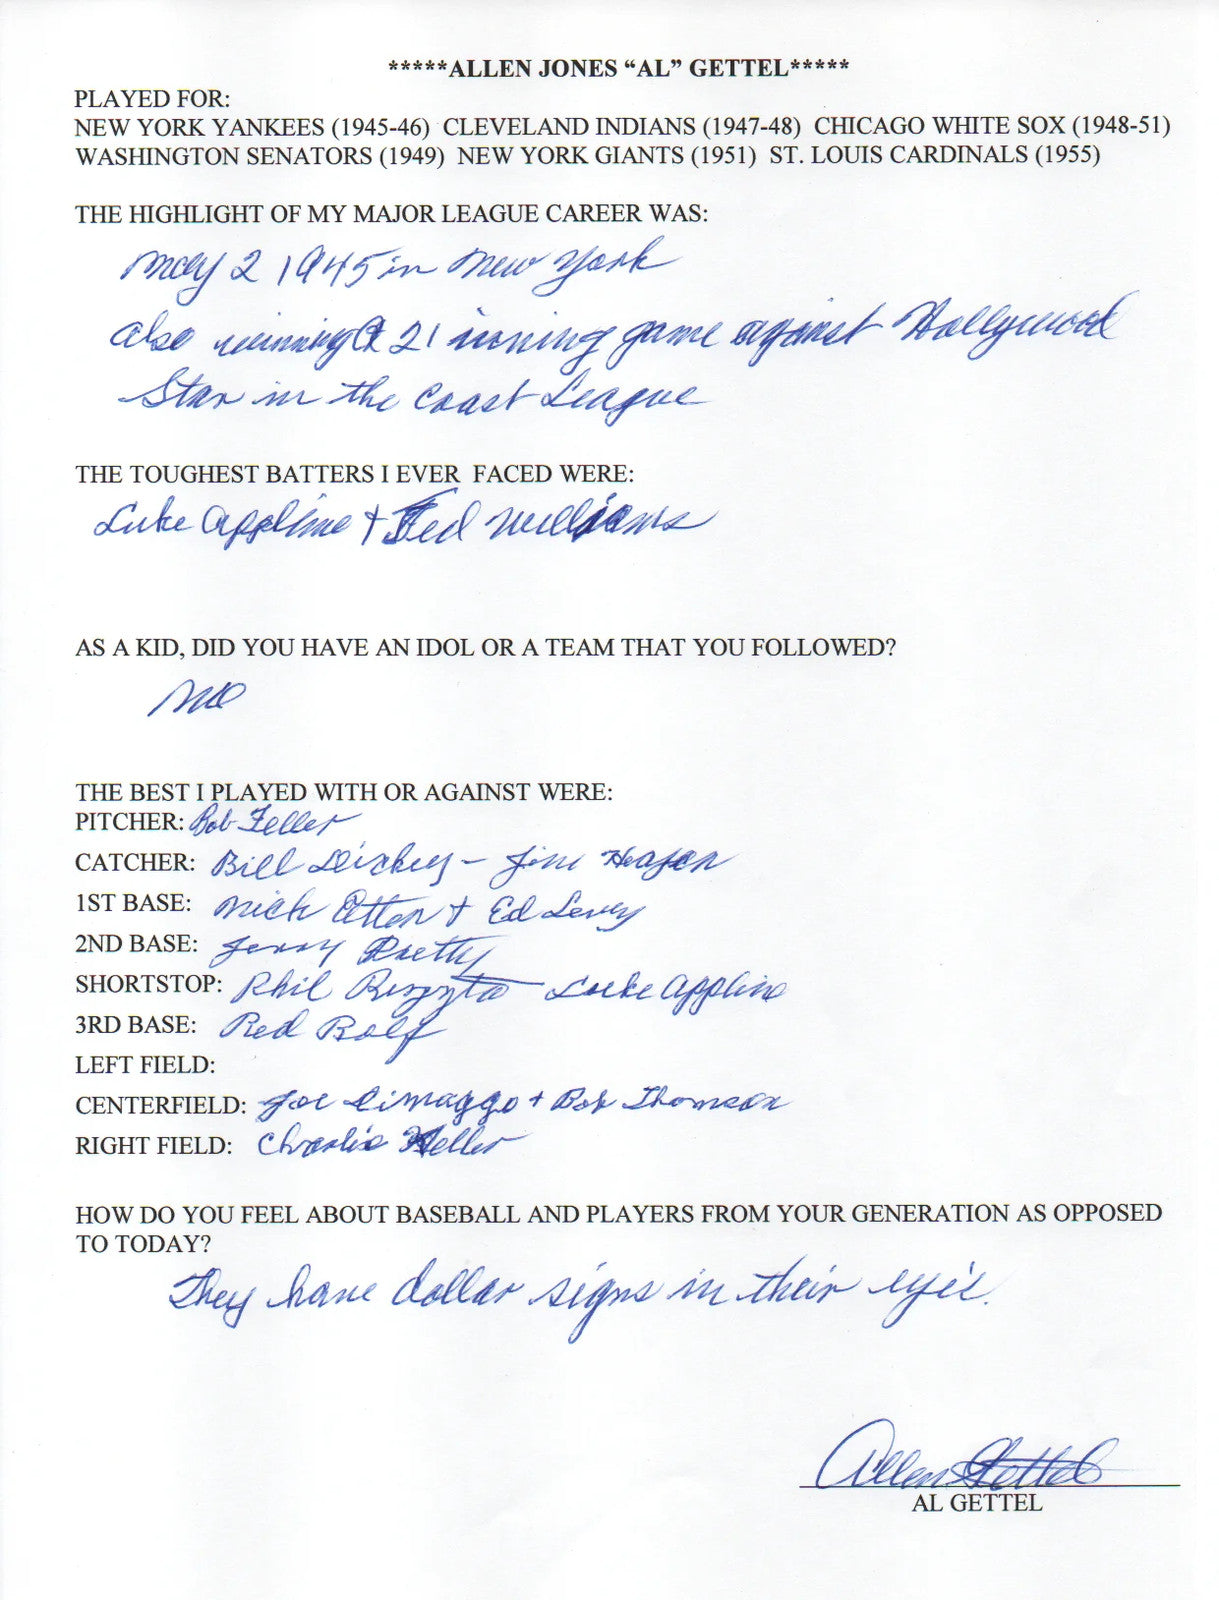 *****ALLEN JONES “AL” GETTEL*****
PLAYED FOR:
NEW YORK YANKEES (1945-46) CLEVELAND INDIANS (1947-48) CHICAGO WHITE SOX (1948-51)
WASHINGTON SENATORS (1949) NEW YORK GIANTS (1951) ST. LOUIS CARDINALS (1955)
THE HIGHLIGHT OF MY MAJOR LEAGUE CAREER WAS:
May 2 1945 in New York
also winning a 21 inning game against Hollywood
Star in the Coast League
THE TOUGHEST BATTERS I EVER FACED WERE:
Luke Appline + Ted Williams
AS A KID, DID YOU HAVE AN IDOL OR A TEAM THAT YOU FOLLOWED?
No
THE BEST I PLAYED WITH OR AGAINST WERE:
PITCHER: Bob Feller
CATCHER: Bill Dickey - Jim
1ST BASE: Nick Etten + Ed Levy
2ND BASE: Jerry
SHORTSTOP: Phil - Luke Appline
3RD BASE: Red Rolf
LEFT FIELD:
CENTERFIELD: Joe Dimaggo + Bob Thomson
RIGHT FIELD: Charlie Keller
HOW DO YOU FEEL ABOUT BASEBALL AND PLAYERS FROM YOUR GENERATION AS OPPOSED
TO TODAY?
They have dollar signs in their eyes.
Allen Gettel
AL GETTEL